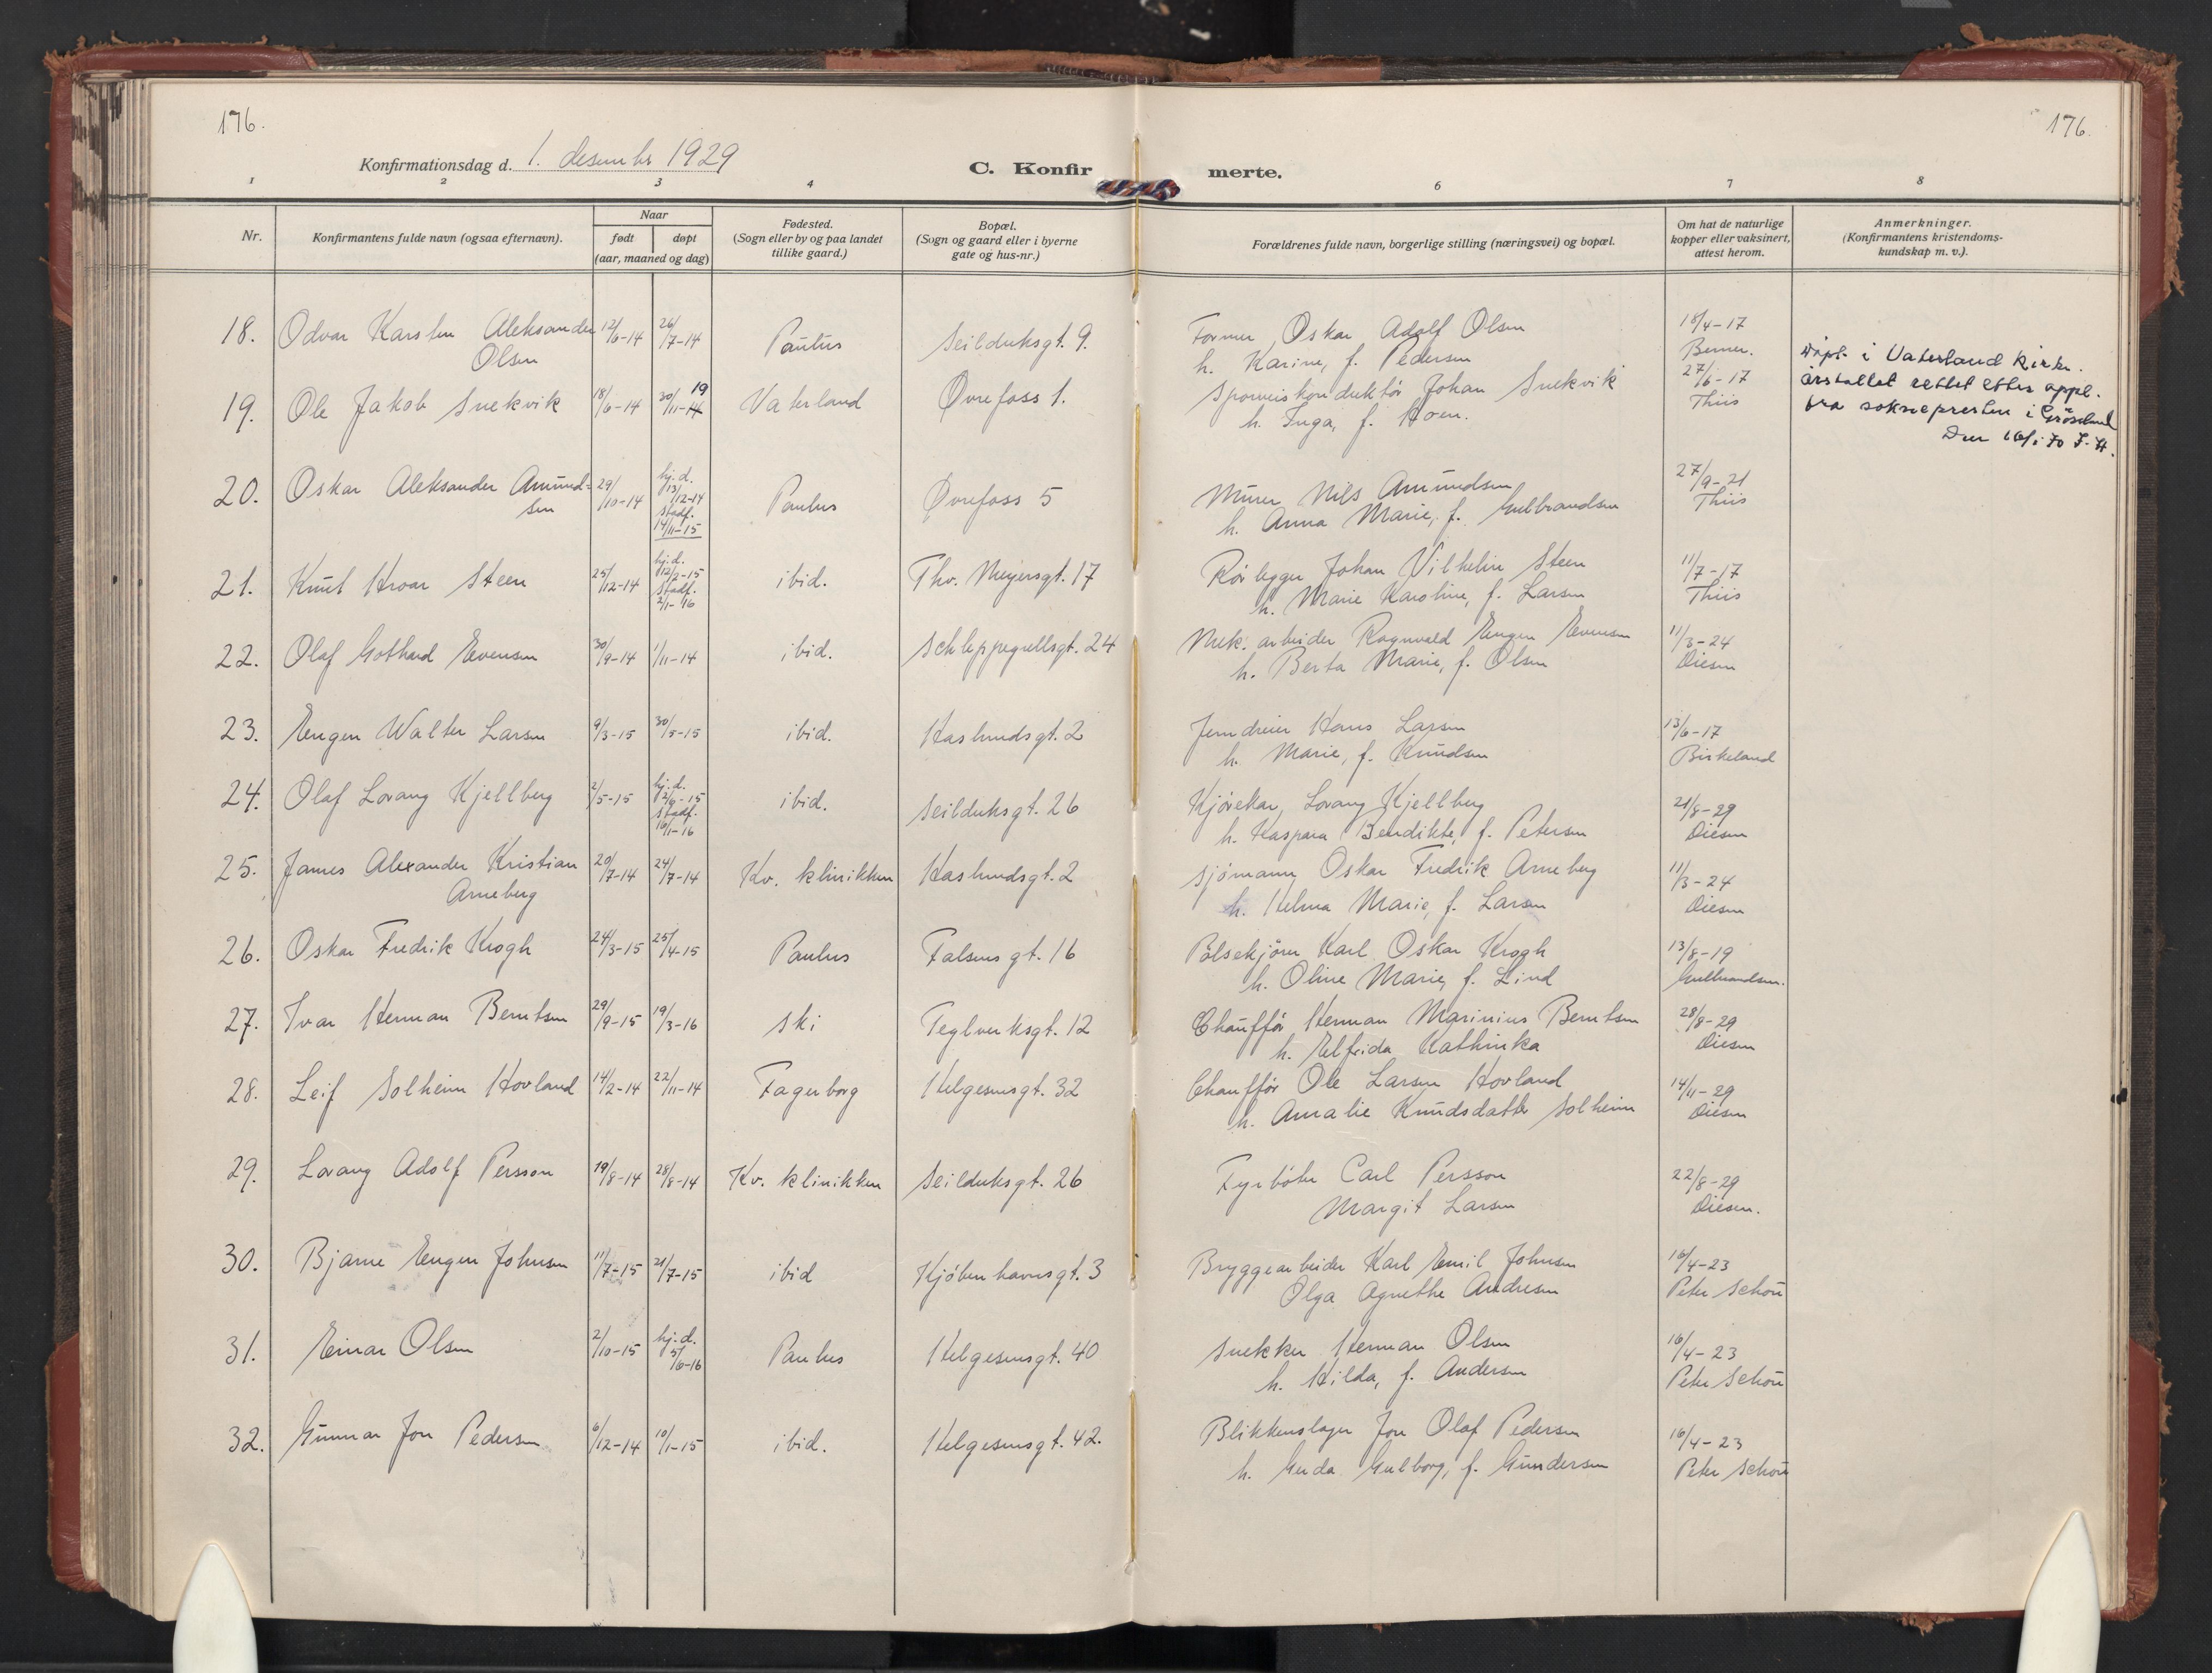 176.
176.
Konfirmationsdag d. 1. desember 1929
C. Konfir merte.
1 2 3 4 6 7 8
Nr.
Konfirmantens fulde navn (ogsaa efternavn).
Naar
født døpt
(aar, maaned og dag)
Fødested.
(Sogn eller by og paa landet
tillike gaard.)
Bopæl.
(Sogn og gaard eller i byerne
gate og hus-nr.)
Forældrenes fulde navn, borgerlige stilling (næringsvei) og bopæl.
Om hat de naturlige
kopper eller vaksinert,
attest herom.
Anmerkninger.
(Konfirmantens kristendoms-
kundskap m. v.).
18. Odvar Karsten Aleksander 12/6-14 26/7-14 Paulus Seilduksgt. 9. Former Oskar Adolf Olsen 18/4-17
Olsen h. Karine, f. Pedersen Berner.
19. Ole Jakob Snekvik 18/6-14 20/11-14 19 Vaterland Øvrefoss 1. Sporveiskonduktør Johan Snekvik 27/6-17
h. Inga, f. Hoen. Thiis
Døpt i Vaterland Kirke.
årstallet rettet etter oppl.
fra soknepresten i
Den 16/1 70 J.H.
20. Oskar Aleksander Amund= 29/10-14 hj.d. 13/12-14 Paulus Øvrefoss 5 Murer Nils Amundsen 27/9-21
sen stadf. 14/11-15 h. Anna Marie, f. Gulbrandsen Thiis
21. Knut Hroar Steen 25/12-14 hj.d. 12/2-15 ibid. Thv. Meyersgt. 17 Rörlegger Johan Vilhelm Steen 11/7-17
stadf. 2/1-16 h. Marie Karoline, f. Larsen Thiis
22. Olaf Gothard Evensen 30/9-14 1/11-14 ibid. Schleppegrellsgt. 24 Mek. arbeider Ragnvald Eugen Evensen 11/3-24
h. Berta Marie, f. Olsen Diesen
23. Eugen Walter Larsen 9/3-15 30/5-15 ibid. Haslundsgt. 2 Jerndreier Hans Larsen 13/6-17
h. Marie, f. Knudsen Birkeland
24. Olaf Lorang Kjellberg 2/5-15 hj.d. 12/6-15 ibid. Seilduksgt. 26 Kjörekar, Lorang Kjellberg 21/8-29
stadf. 16/1-16 h. Kaspara Bendikte, f. Petersen Diesen
25. James Alexander Kristian 20/7-14 24/7-14 Kv. klinikken Haslundsgt. 2 Sjömann Oskar Fredrik Arneberg 11/3-24
Arneberg h. Helma Marie, f. Larsen Diesen
26. Oskar Fredrik Krogh 24/3-15 25/4-15 Paulus Falsensgt. 16 Pölsekjörer Karl Oskar Krogh 13/8-19
h. Oline Marie, f. Lind Gulbrandsen.
27. Ivar Herman Berntsen 29/9-15 19/3-16 Ski Teglverksgt. 12 Chaufför Herman Marinius Berntsen 28/8-29
h. Elfrida Kathinka Diesen
28. Leif Solheim Hovland 14/2-14 22/11-14 Fagerborg Helgesensgt. 32 Chaufför Ole Larsen Hovland 14/11-29
h. Amalie Knudsdatter Solheim Diesen
29. Lorang Adolf Persson 19/8-14 28/8-14 Kv. klinikken Seilduksgt. 26 Fyrböter Carl Persson 22/8-29
Margit Larsen Diesen.
30. Bjarne Eugen Johnsen 11/7-15 21/7-15 ibid Kjöbenhavnsgt. 3 Bryggearbeider Karl Emil Johnsen 16/4-23
Olga Agnethe Andresen Peter Schou
31. Einar Olsen 2/10-15 hj.d. 5/6-16 Paulus Helgesensgt. 40 Snekker Herman Olsen 16/4-23
h. Hilda, f. Andersen Peter Schou
32. Gunnar Jon Pedersen 6/12-14 10/1-15 ibid. Helgesensgt. 42. Blikkenslager Jon Olaf Pedersen 16/4-23
h. Gerda Gulborg, f. Gundersen Peter Schou